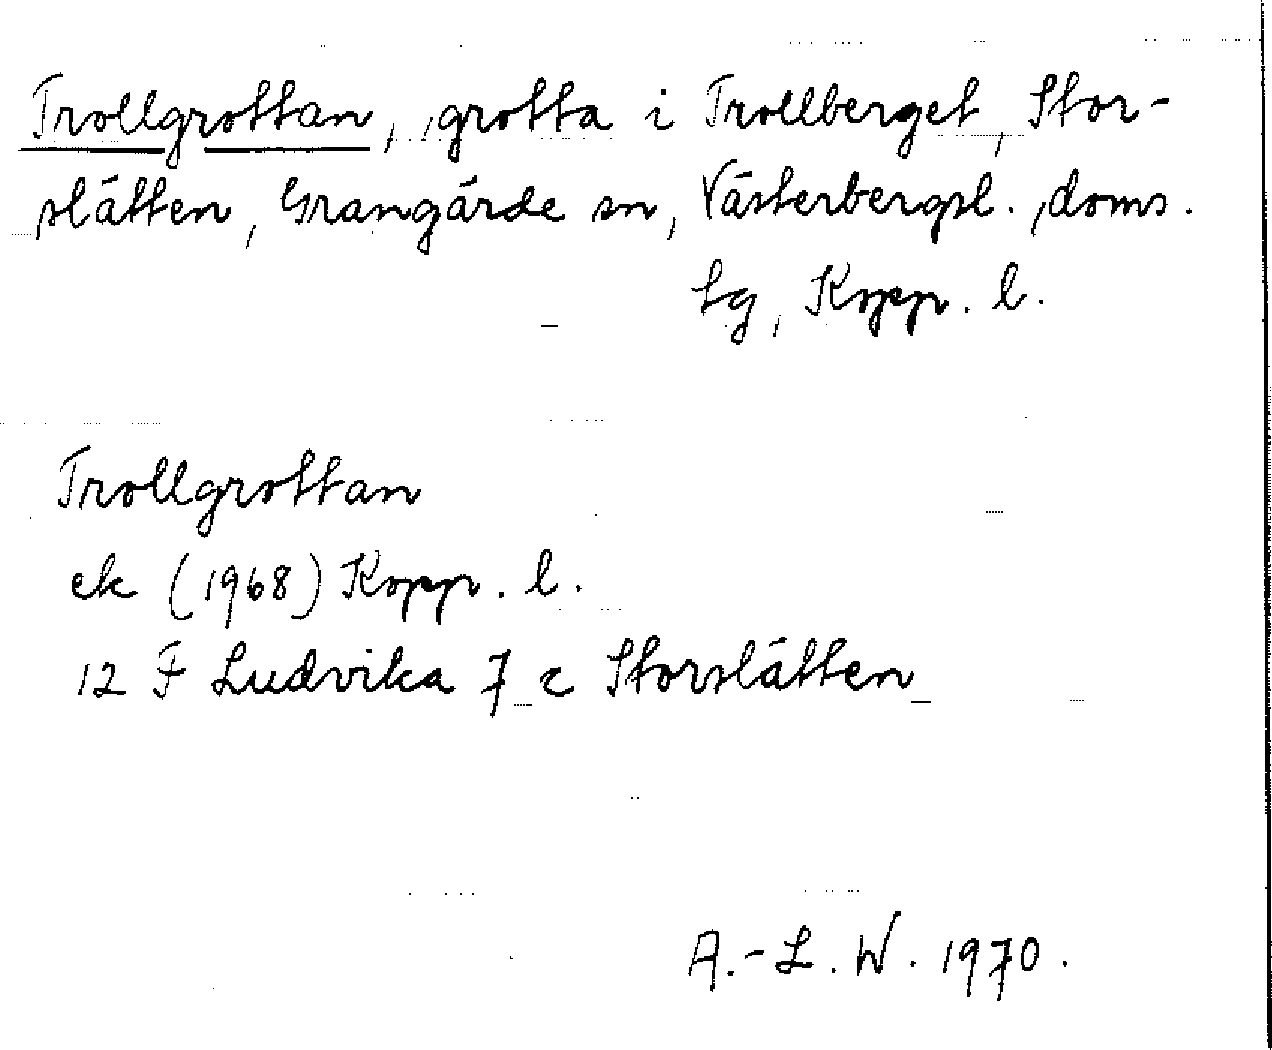 Trollgrottan, grotta i Trollberget, Stor-
slätten, Grangärde sn, Västerbergsl. doms.
tg, Kopp. l.
Trollgrottan
ek (1968) Kopp. l.
12 F Ludvika 7 c Storslätten
A.-L. W. 1970.